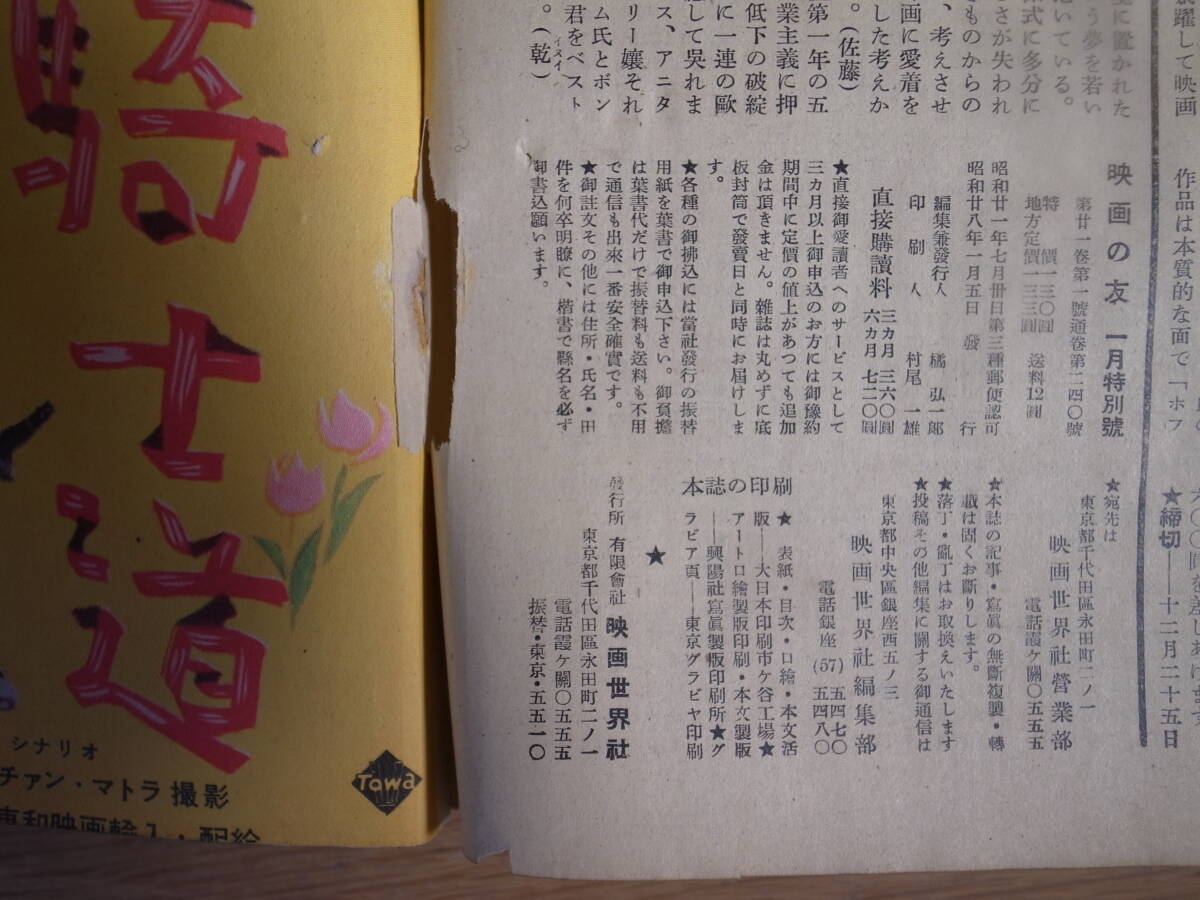 躍して映画
作品は本質的な面で「ホフ
★締切――十二月二十五日
境に置かれた
う夢を若い
いている。
式に多分に
さが失われ
ものからの
、考えさせ
画に愛着を
した考えか
。(佐藤)
第一年の五
業主義に押
低下の破綻
に一連の歐
して呉れま
ス、アニタ
リー嬢それ
ム氏とボン
君をベスト
。(乾イヌイ)
映画の友 一月特別號
第廿一巻第一號通巻第二四〇號
特價一三〇圓
地方定價一三三圓 送料12圓
昭和廿一年七月卅日第三種郵便認可
昭和廿八年一月五日 發行
編集兼發行人 橘弘一郎
印刷人 村尾一雄
直接購讀料 三カ月 三六〇圓
六カ月 七二〇圓
★直接御愛讀者へのサービスとして
三カ月以上御申込のお方には御豫約
期間中に定價の値上があつても追加
金は頂きません。雜誌は丸めずに底
板封筒で發賣日と同時にお届けしま
す。
★各種の御拂込には當社發行の振替
用紙を葉書で御申込下さい。御負擔
は葉書代だけで振替料も送料も不用
で通信も出來一番安全確實です。
★御註文その他には住所・氏名・田
件を何卒明瞭に、楷書で縣名を必ず
御書込願います。
★宛先は
東京都千代田區永田町二ノ一
映画世界社營業部
電話霞ケ關〇五五五
★本誌の記事・寫眞の無斷複製・轉
載は固くお斷りします。
★落丁・亂丁はお取換えいたします
★投稿その他編集に關する御通信は
東京都中央區銀座西五ノ三
映画世界社編集部
電話銀座(57)五四七〇
五四八〇
本誌の印刷
★表紙・目次・口繪・本文活
版――大日本印刷市ケ谷工場★
アートロ繪製版印刷・本文製版
――興陽社寫眞製版印刷所★グ
ラビア頁――東京グラビヤ印刷
★
發行所 有限會社 映画世界社
東京都千代田區永田町二ノ一
電話霞ケ關〇五五五
振替・東京・五五一〇
騎士道
シナリオ
チァン・マトラ撮影
東和映画輸入・配給
Towa